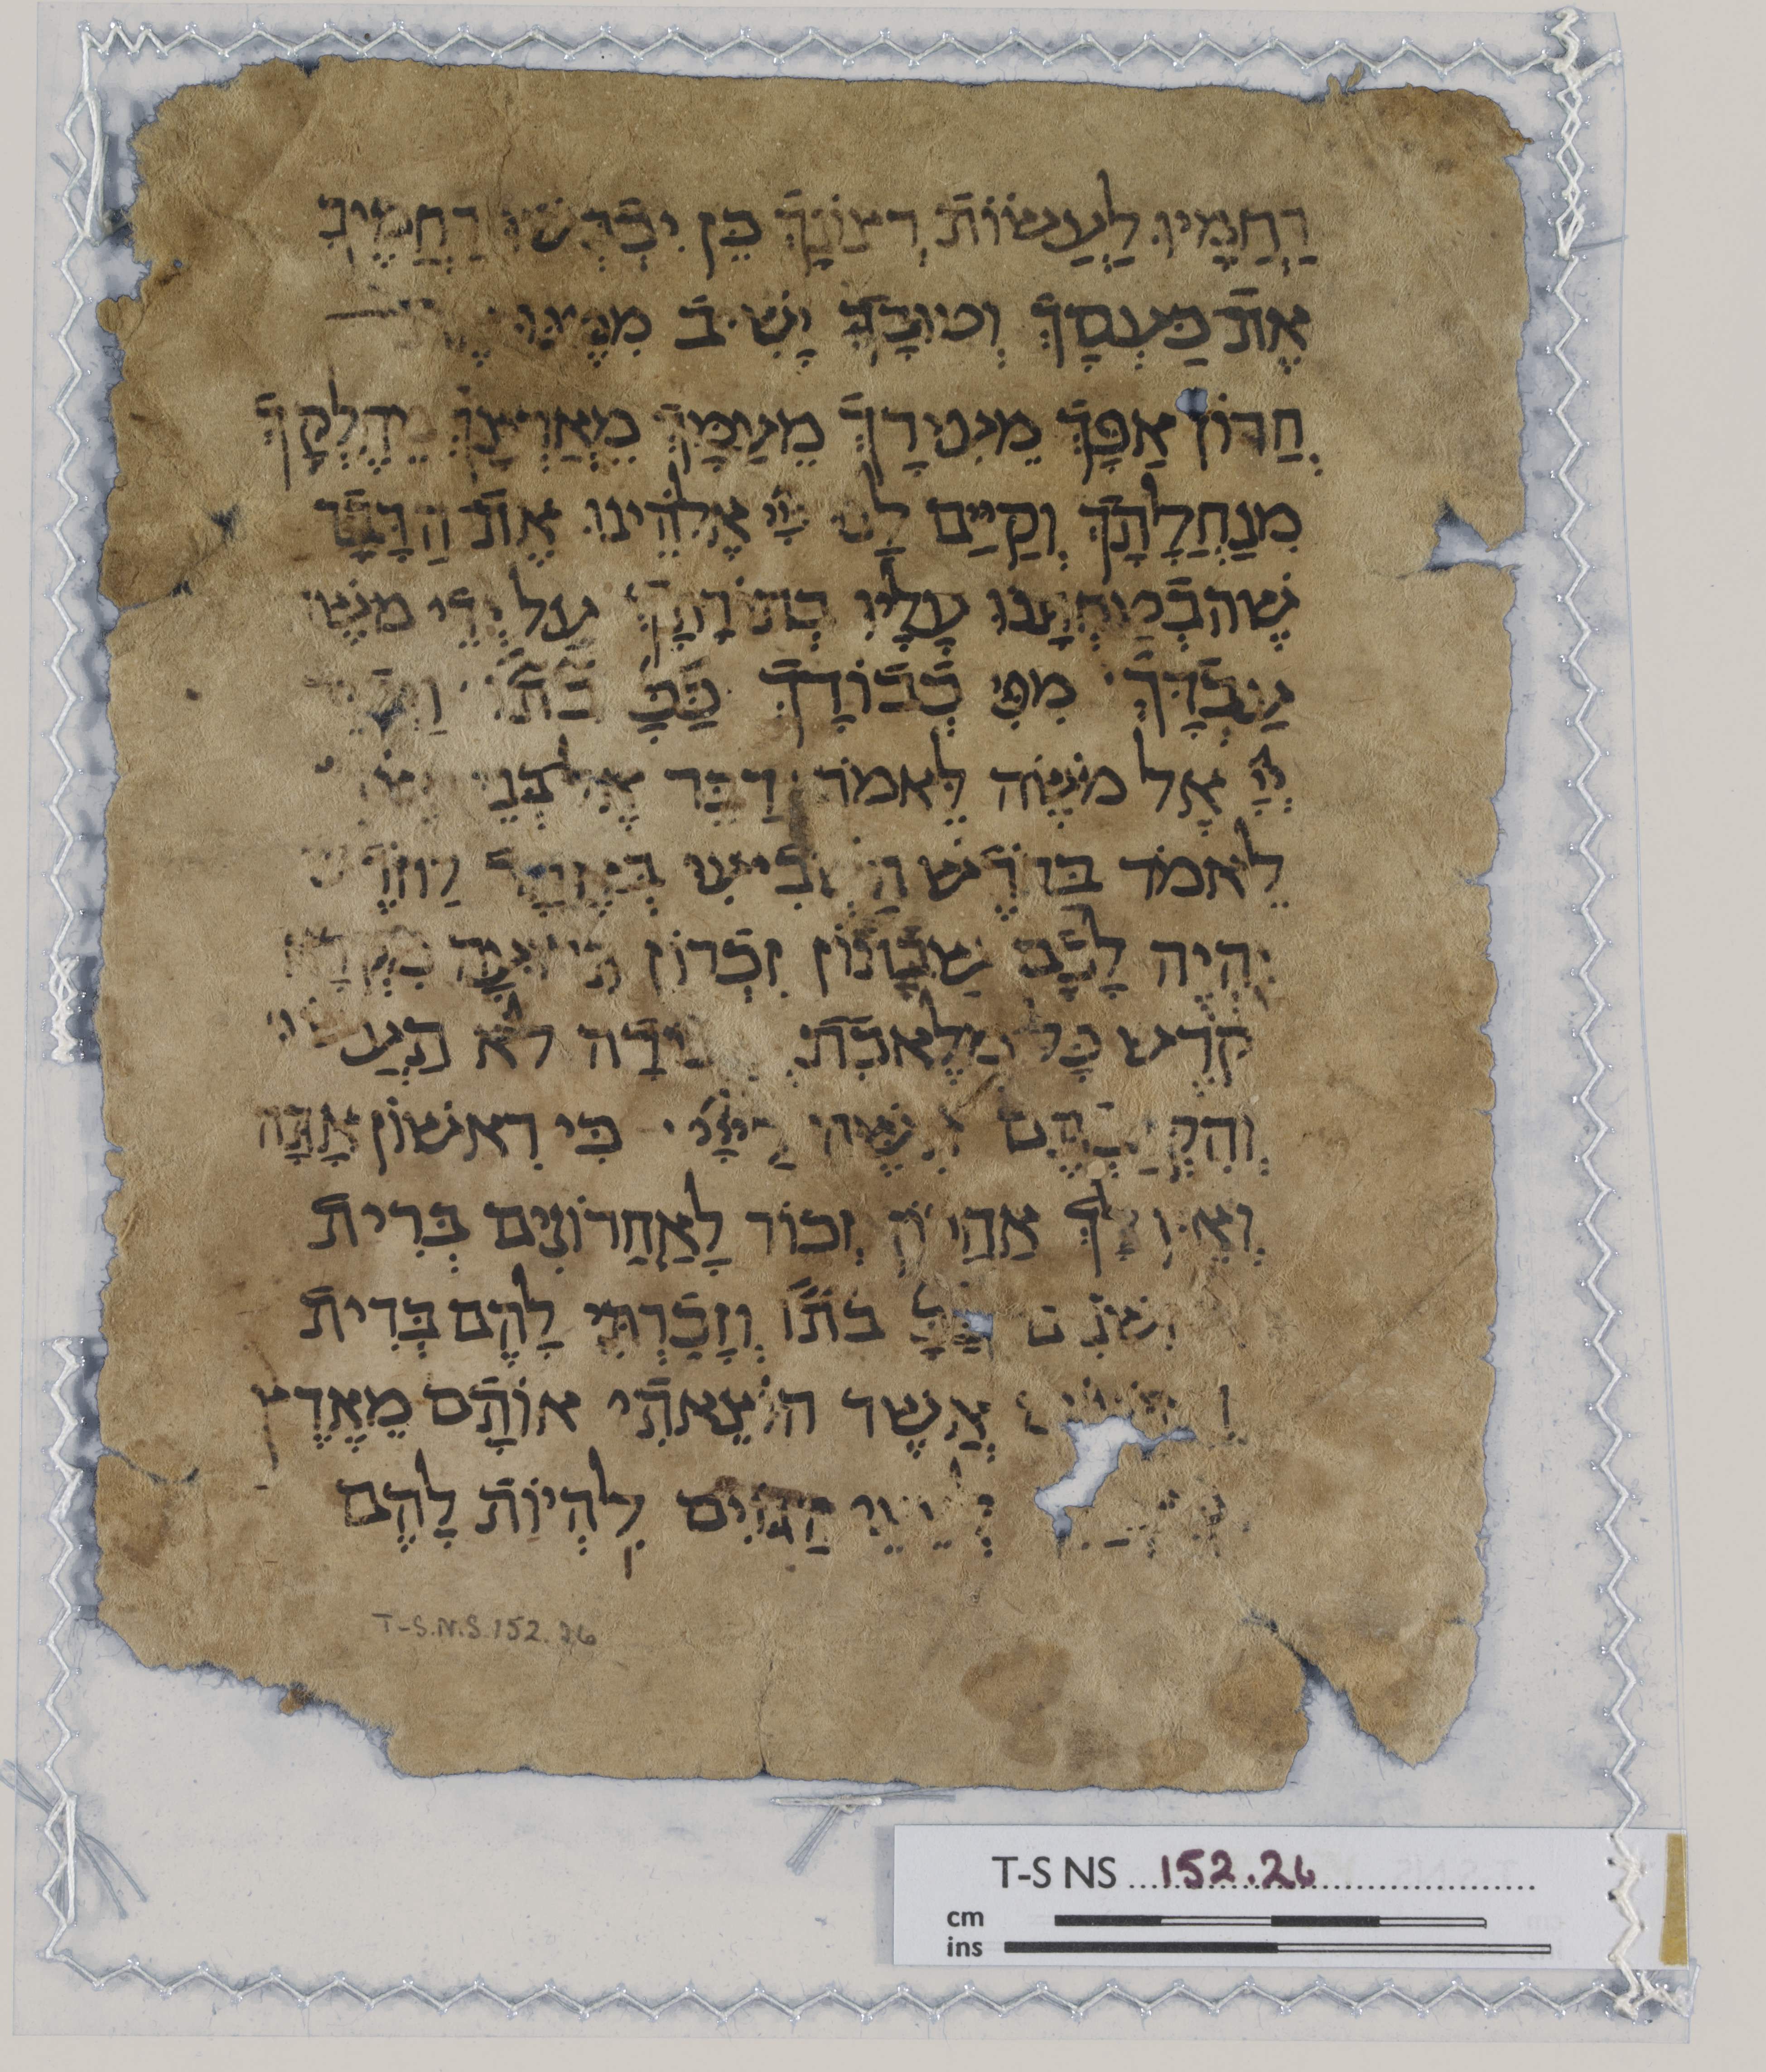 רַחֲמָיו לַעֲשׂוֹת רְצוֹנָךְ כֵּן יִכְבְּשׁוּ רַחֲמֶיךָ
אֶת כַּעְסָךְ וְטוּבָךְ יָשִׁיב
חֲרוֹן אַפָּךְ מֵעִירָךְ מֵעַמָּךְ מֵאַרְצָךְ מֵחֶלְקָךְ
מִנַחֲלָתָךְ וְקַיֵּים לָנוּ יְיָ אֱלֹהֵינוּ אֶת הַדָּבָר
שֶׁהִבְטַחְתָנוּ עָלָיו בְּתוֹרָתָךְ עַל יְדֵי מֹשֶׁה
עַבְדָּךְ מִפִּי כְבוֹדָךְ כַּכָּ בַּתוֹ וַיְדַבֵּר
יְיָ אֶל מֹשֶׁה לֵּאמֹר דַבֵּר אֶל בְּנֵי
לֵאמֹר בַּחֹדֶשׁ הַשְׁבִיעִי בְּאֶחָד לַחֹדֶשׁ
יִהְיֶה לָכֶם שַׁבָּתוֹן זִכְרוֹן תְּרוּעָה מִקְרָא
קֹדֶשׁ כָּל מְלֶאכֶת עֲבֹדָה לֹא תַעֲשׂוּ
וְהִקְרַבְתֶּם אִשֶּׁה לַיְיָ כִּי רִאשׁוֹן אָתָּה
וְאֵין לָךְ אַחֲרוֹן זְכוֹר לָאַחֲרוֹנִים בְּרִית
רִאשֹׁנִים כַּכָּ בתוֹ וְזָכַרְתִּי לָהֶם בְּרִית
רִאשֹׁנִים אֲשֶׁר הוֹצֵאתִי אוֹתָם מֵאֶרֶץ
מִצְרַיִם לְעֵינֵי הַגּוֹיִם לִהְיוֹת לָהֶם
T-S.N.S.152.26
T-S NS 152.26
cm
ins